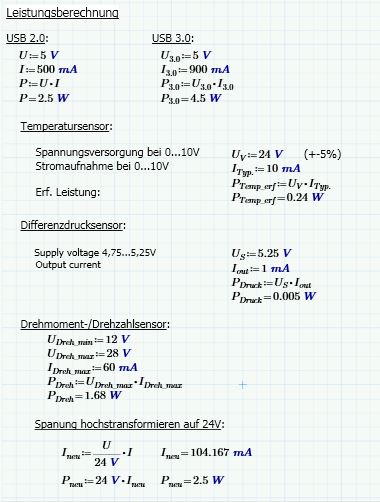 Leistungsberechnung
USB 2.0: USB 3.0:
U:=5 V U3.0:=5 V
I:=500 mA I3.0:=900 mA
P:=U·I P3.0:=U3.0·I3.0
P=2.5 W P3.0=4.5 W
Temperatursensor:
Spannungsversorgung bei 0...10V UV:=24 V (+-5%)
Stromaufnahme bei 0...10V ITyp.:=10 mA
PTemp_erf:=UV·ITyp.
Erf. Leistung: PTemp_erf=0.24 W
Differenzdrucksensor:
Supply voltage 4,75...5,25V US:=5.25 V
Output current Iout:=1 mA
PDruck:=US·Iout
PDruck=0.005 W
Drehmoment-/Drehzahlsensor:
UDreh_min:=12 V
UDreh_max:=28 V
IDreh_max:=60 mA
PDreh:=UDreh_max·IDreh_max
PDreh=1.68 W
Spanung hochstransformieren auf 24V:
Ineu:=U/24 V·I Ineu=104.167 mA
Pneu:=24 V·Ineu Pneu=2.5 W